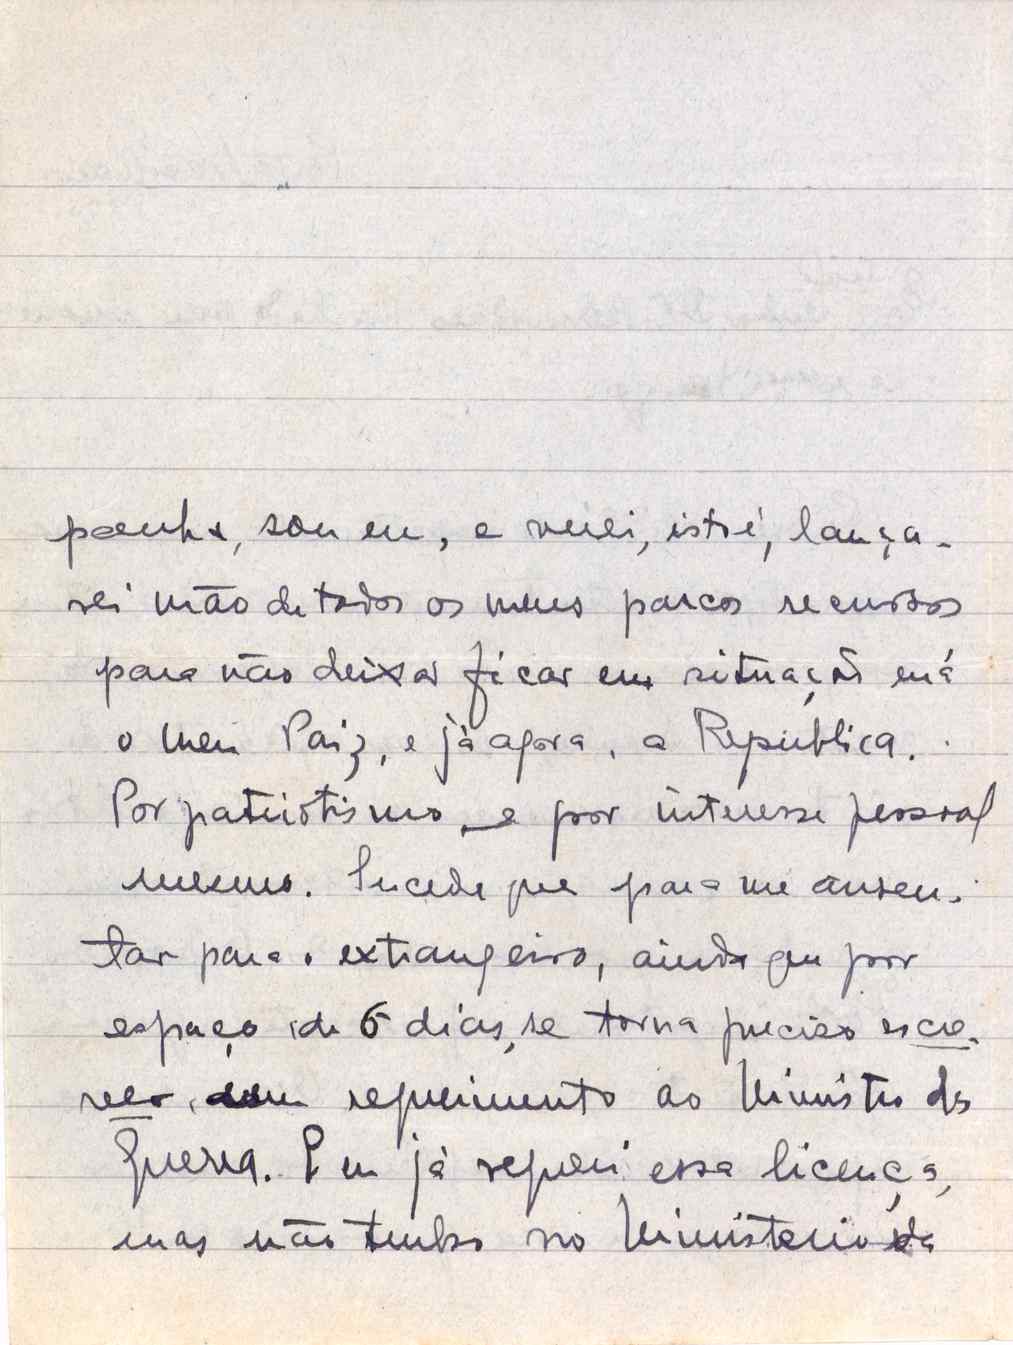 panha, sou eu, e verei, isto é, lança-
rei mão de todos os meus parcos recursos
para não deixar ficar em situação má
o meu Paiz, e já agora, a Republica.
Por patriotismo, e por interesse pessoal
mesmo. Sucede que para me ausen-
tar para o extrangeiro, ainda que por
espaço de 6 dias, se torna preciso escre-
ver, um requerimento ao Ministro da
Guerra. Eu já requeri essa licença,
mas não tenho no Ministerio da